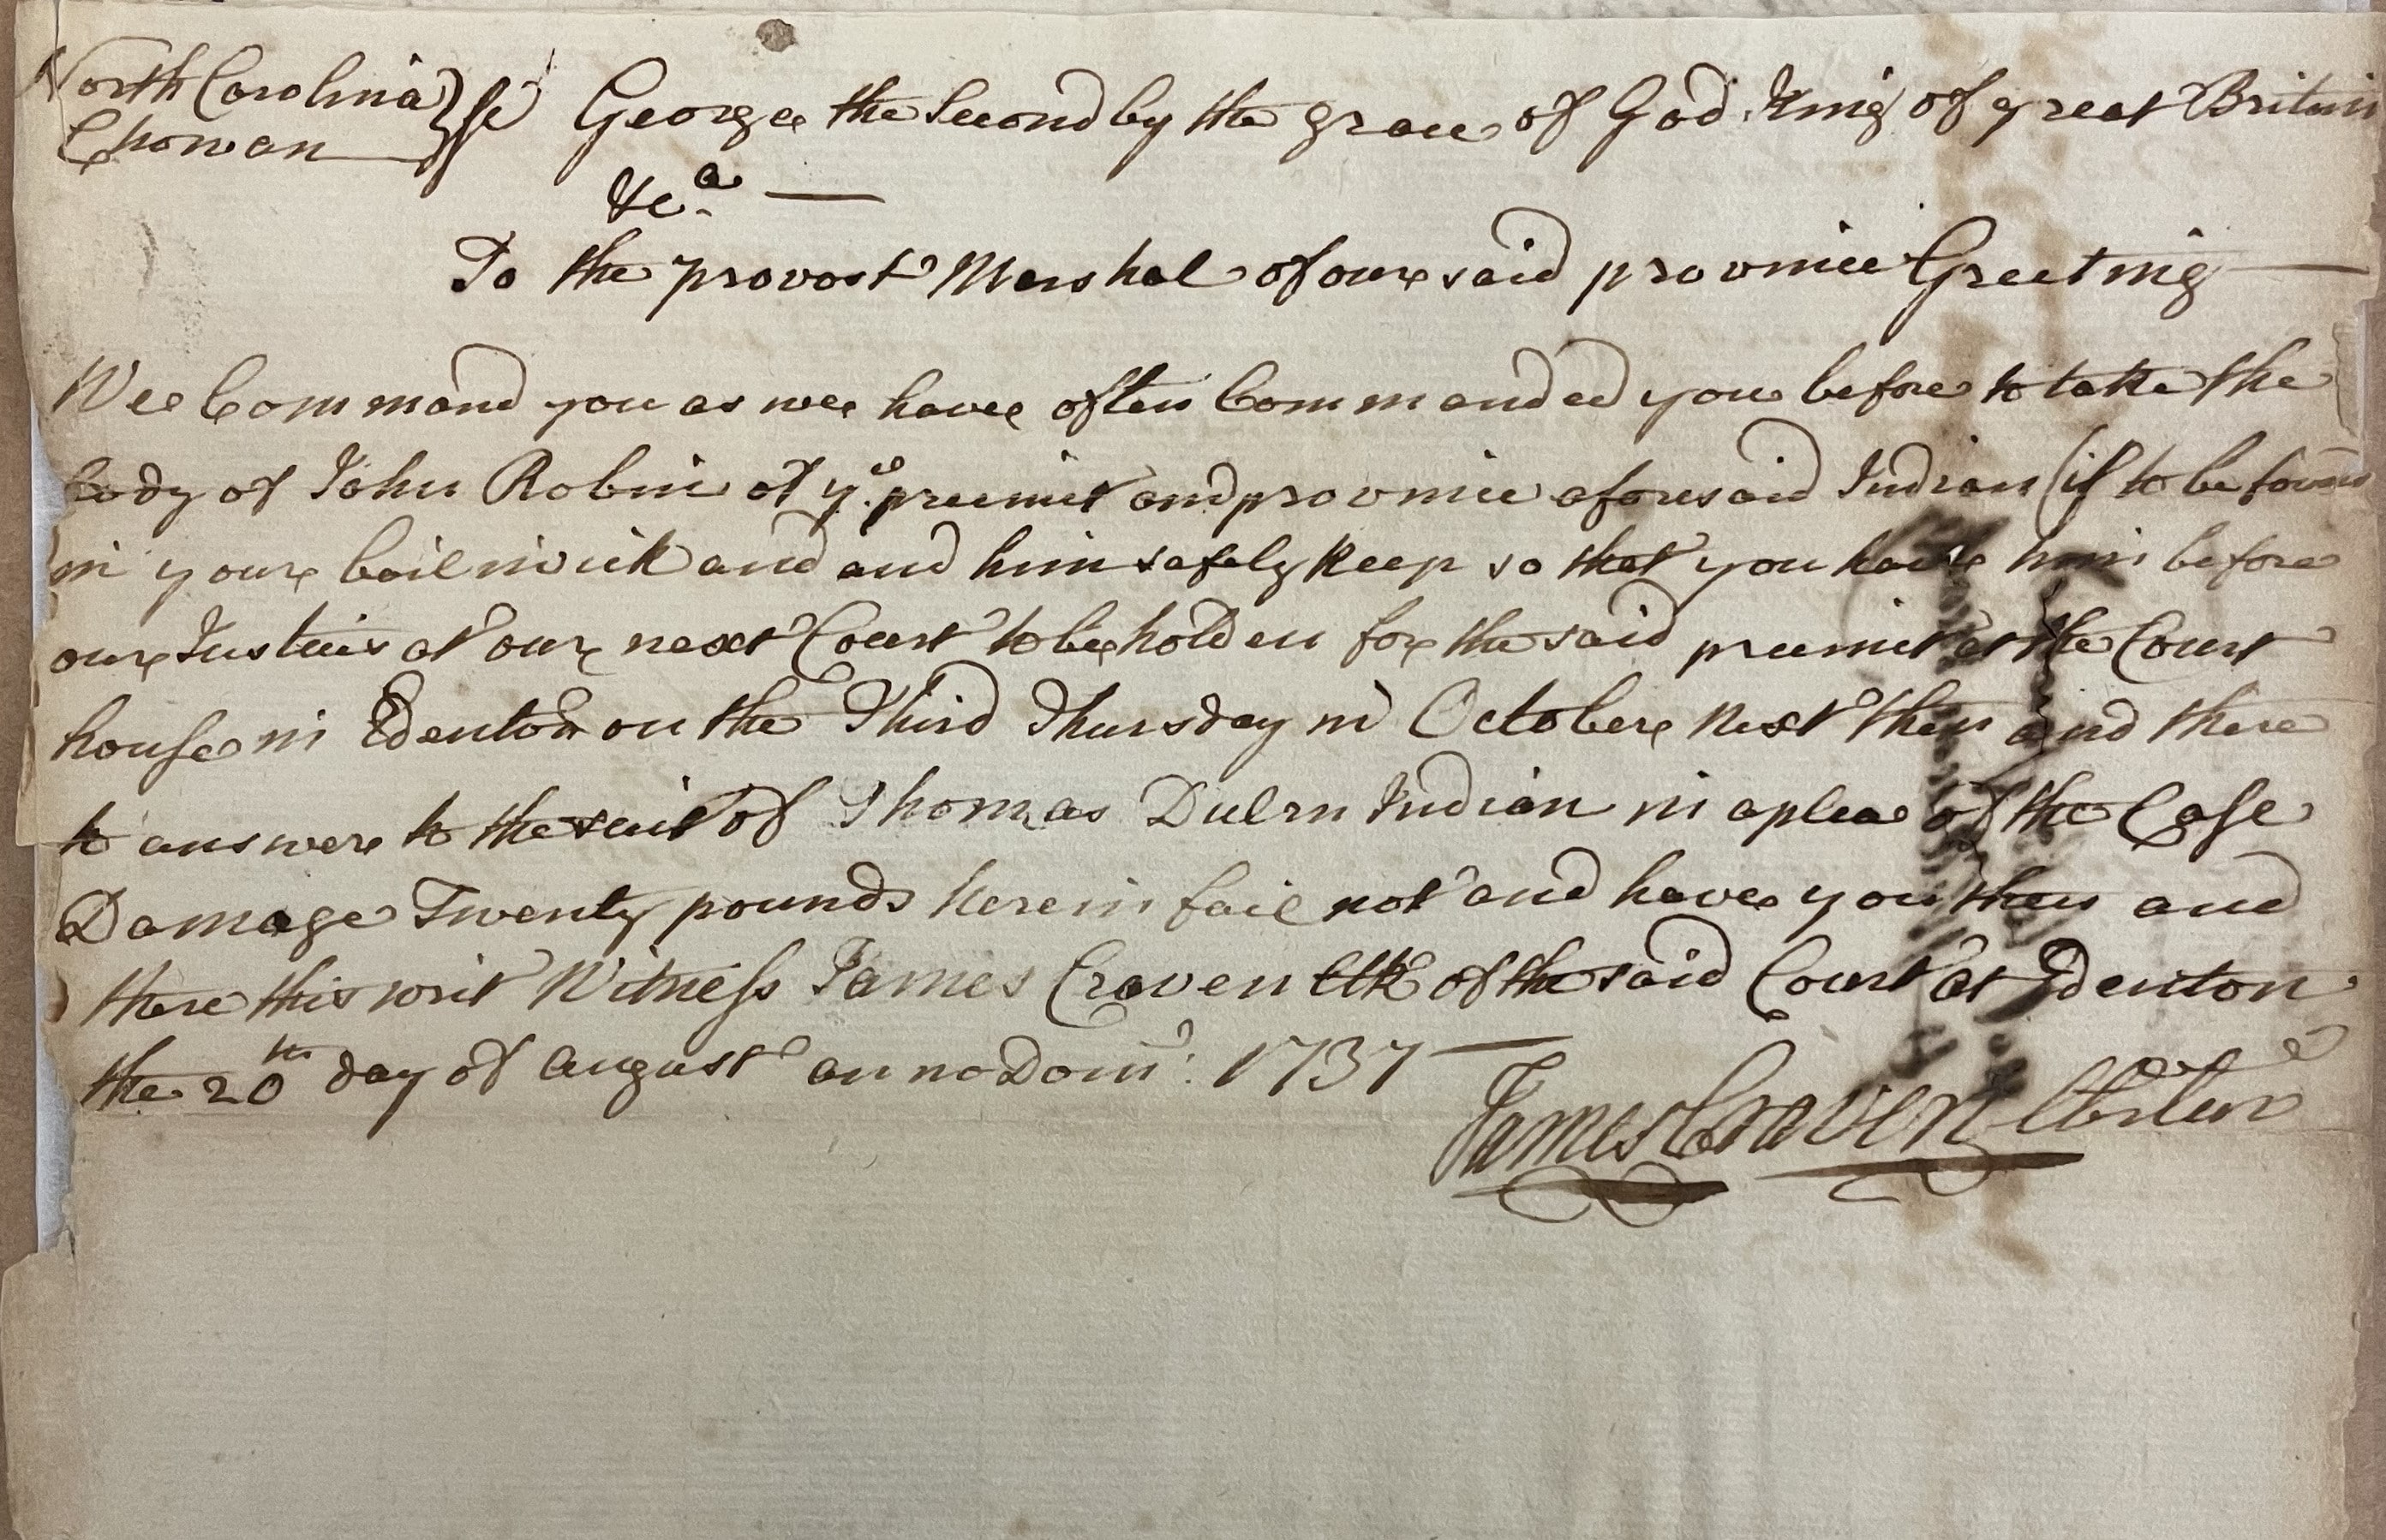 North Carolina } sc George the Second by the grace of God King of great Britain
Chowan
&c.a —
To the provost Marshal of our said province Greeting —
Wee Command you as wee have often Commanded you before to take the
body of John Robin of ye precinct and province aforesaid Indian (if to be found
in your bailiwick and and him safely keep so that you have him before
our Justices at our next Court to be holden for the said precinct at the Court
house in Edenton on the Third Thursday in October next then and there
to answere to the suit of Thomas Indian in a plea of the Case
Damage Twenty pounds herein fail not and have you then and
there this writ Witness James Craven Clk of the said Court at Edenton
the 20th day of august anno Dom: 1737 —
James Craven